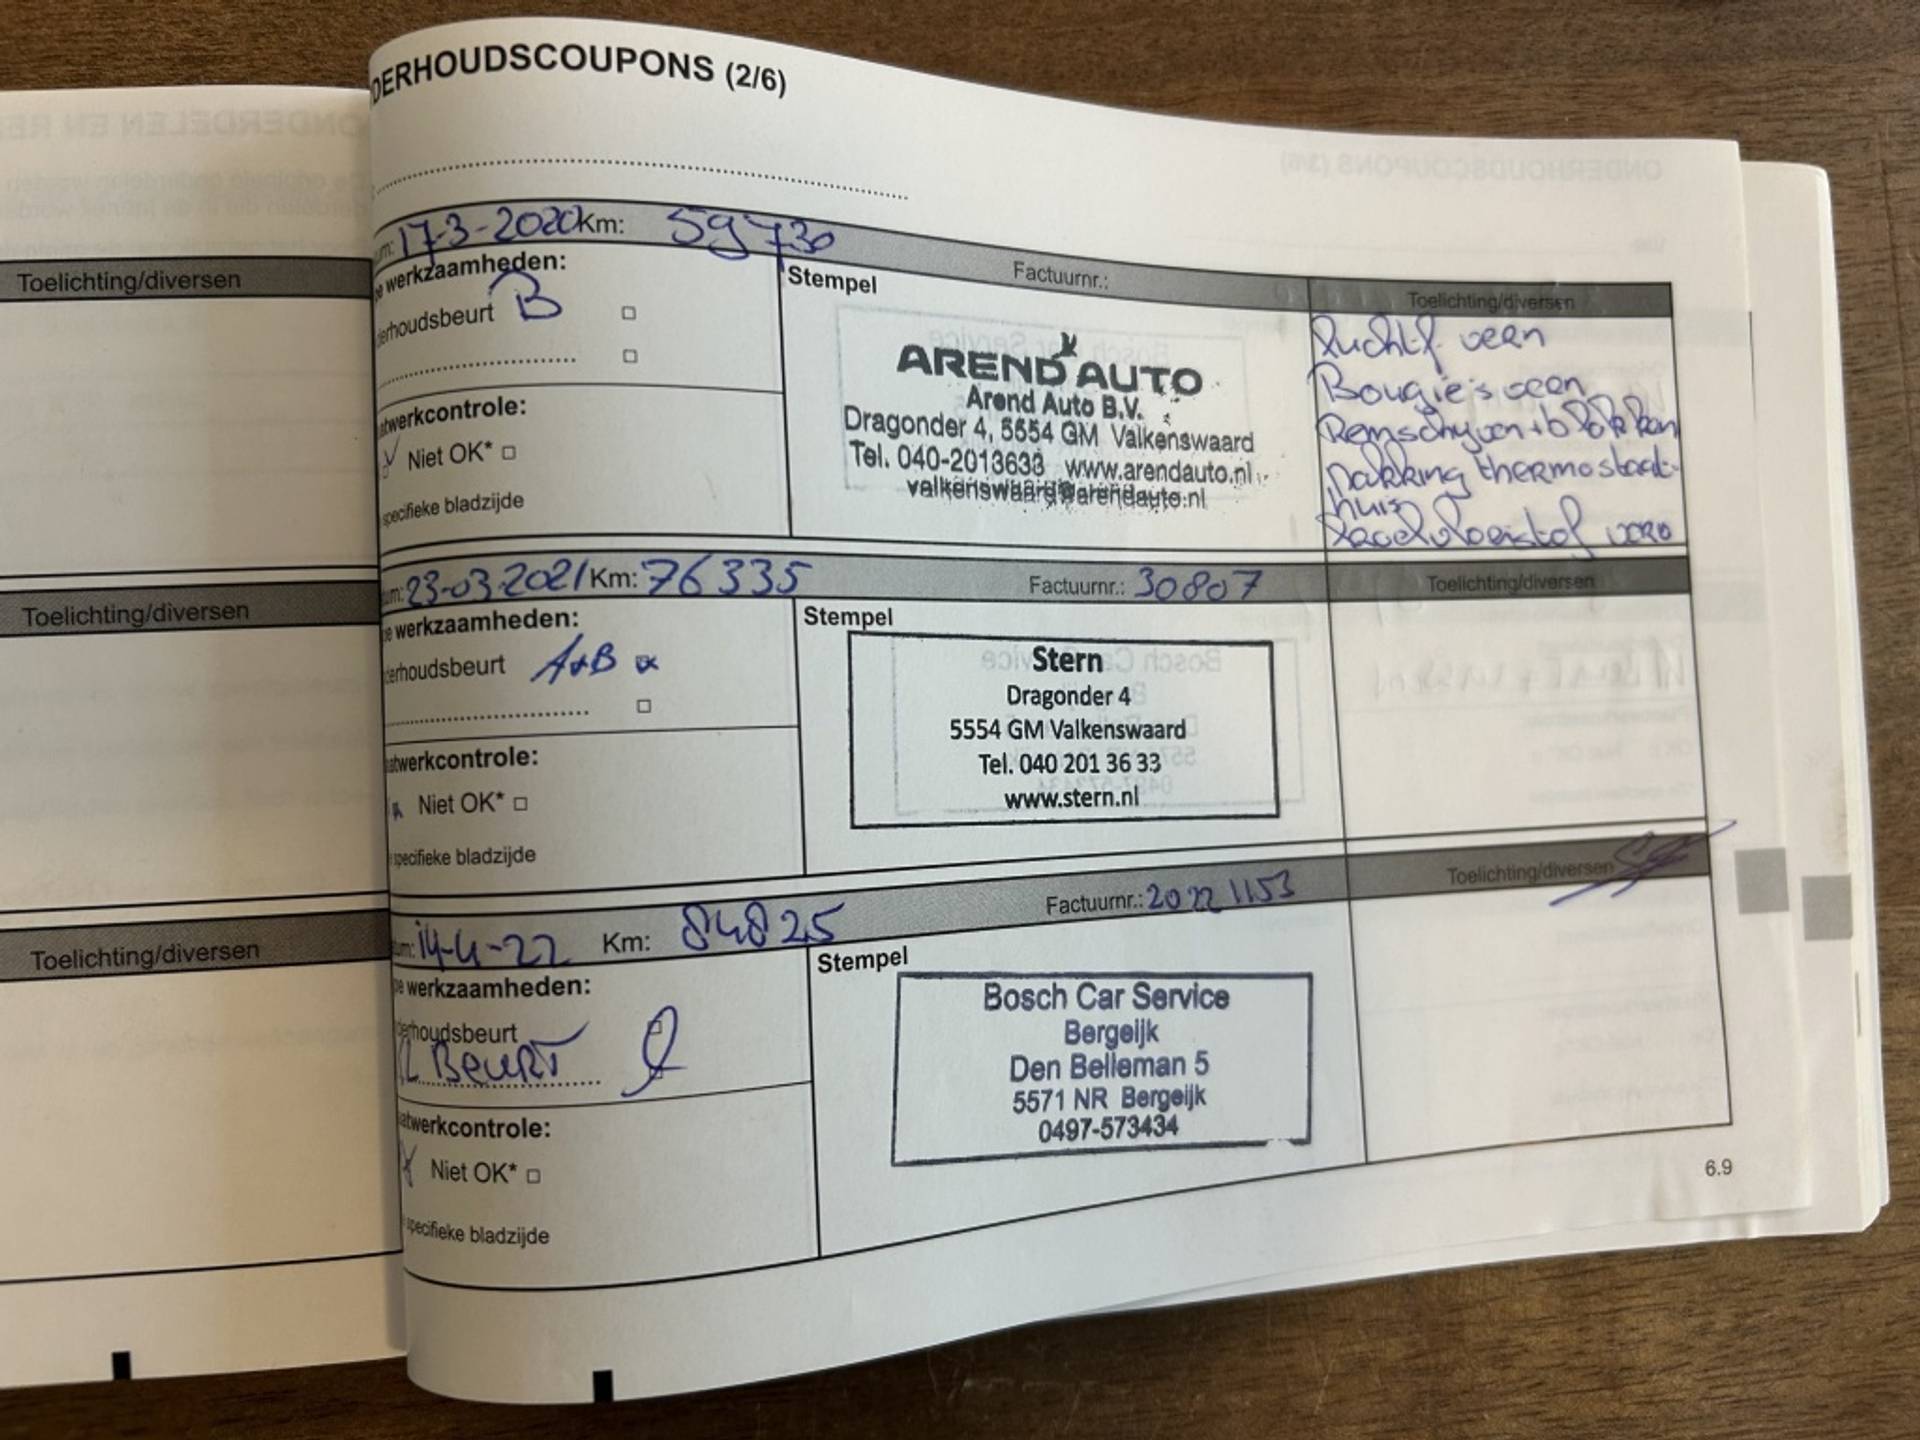 DERHOUDSCOUPONS (2/6)
17-3-2020 Km: 59730
Factuurnr.:
Toelichting/diversen
werkzaamheden:
derhoudsbeurt B
Stempel
AREND AUTO
Arend Auto B.V.
Dragonder 4, 5554 GM Valkenswaard
Tel. 040-2013633 www.arendauto.nl
valkenswaard@arendauto.nl
Bougie's
pakking thermostaat
huis
twerkcontrole:
Niet OK*
specifieke bladzijde
um: 23-03-2021 Km: 76335
Factuurnr.: 30807
Toelichting/diversen
e werkzaamheden:
derhoudsbeurt A+B
Stempel
Stern
Dragonder 4
5554 GM Valkenswaard
Tel. 040 201 36 33
www.stern.nl
atwerkcontrole:
Niet OK*
specifieke bladzijde
um: 14-4-22 Km: 84825
Factuurnr.: 20221153
Toelichting/diversen
e werkzaamheden:
derhoudsbeurt
BEURT
Stempel
Bosch Car Service
Bergeijk
Den Belleman 5
5571 NR Bergeijk
0497-573434
atwerkcontrole:
Niet OK*
specifieke bladzijde
6.9
Toelichting/diversen
Toelichting/diversen
Toelichting/diversen